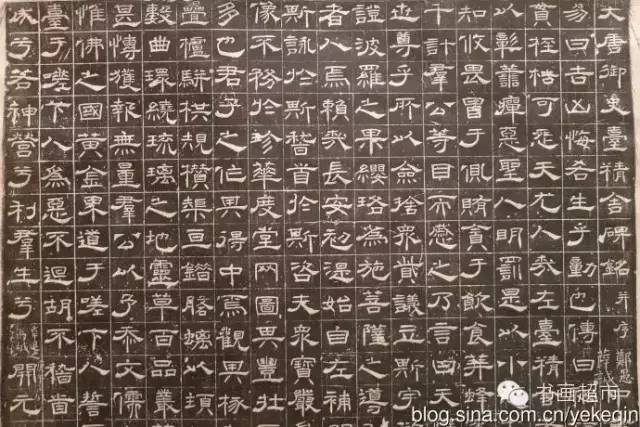 大唐御史臺精舍碑銘并序
易曰吉凶悔吝生乎動也傳曰
貫桎梏可悲天尤人哉左臺精
以彰善癉惡聖人明罰是以小
知攸畏冒于貨賄貪于飲食莽蜂
千計羣公等目而感之乃言曰天
世尊乎所以僉捨衆貲議立斯宇
證波羅之果纓珞為施菩薩之導
者人焉賴哉長安初湜始自左補
斯詠於斯稽首於斯咨夫衆寶嚴
像不務於珍華度堂罔圖其豐壯
多也君子之作其得中焉觀其椽
疊櫨駢栱規攢榘亘鍇螭以頊
數曲環繞琉璃之地靈草百品
甚博獲報無量羣公以予忝文儒
惟佛之國黃金界道于嗟下人誓
臺于嗟下人為惡不迴胡不稽首
兮若神營兮利羣生兮 開元
书画超市
blog.sina.com.cn/yekeqin